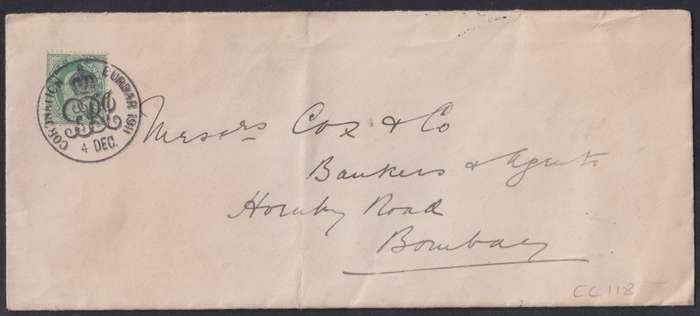 CORONATION DURBAR 1911
4 DEC.
Messrs Cox & Co
Bankers & Agents
Hornby Road
Bombay
CC118